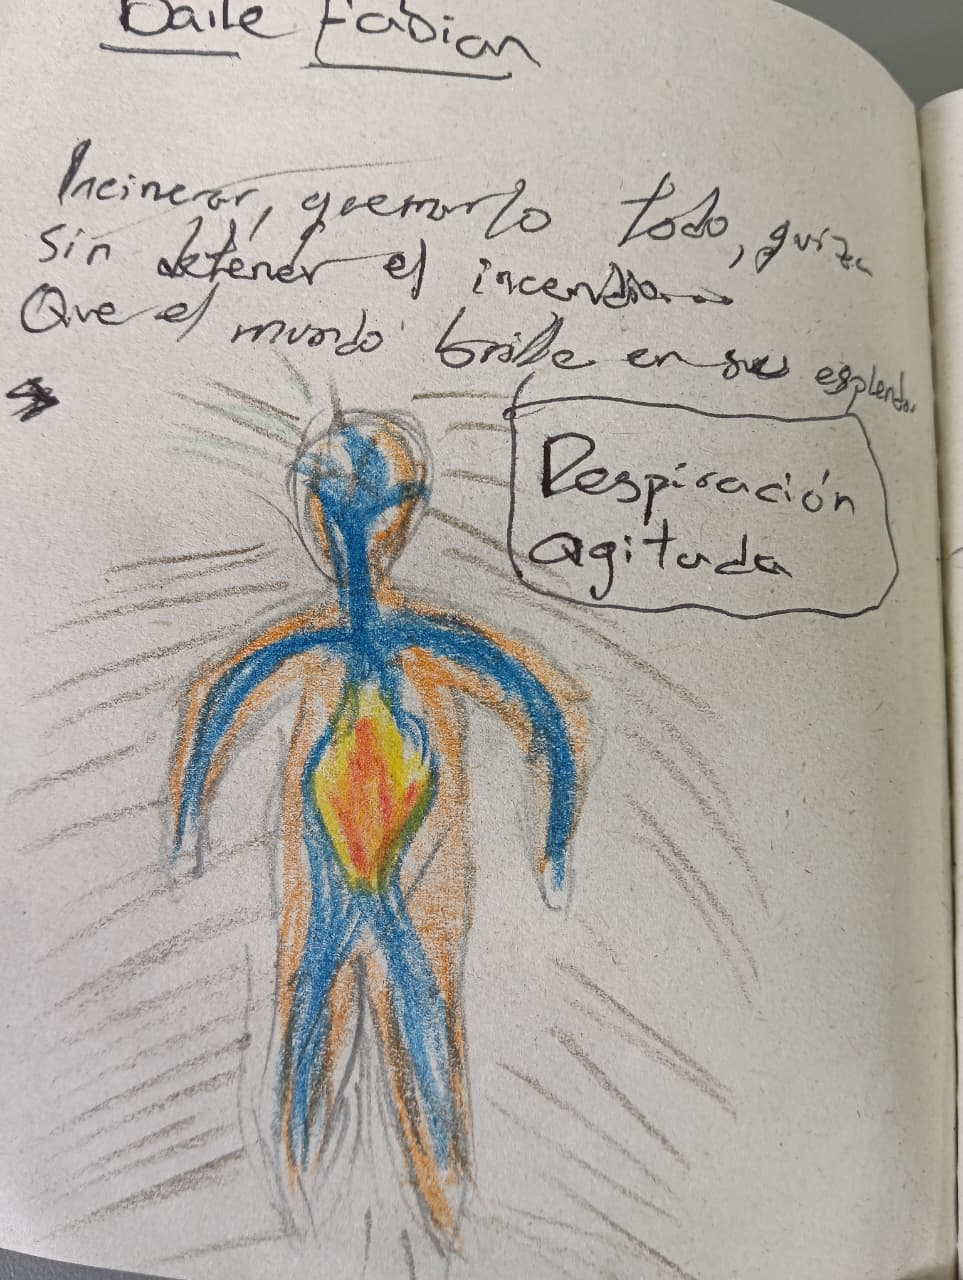 Baile Fabian
Incinerar, quemarlo todo, quiza
sin detener el incendio
Que el mundo brille en su esplendor
Respiración
agitada